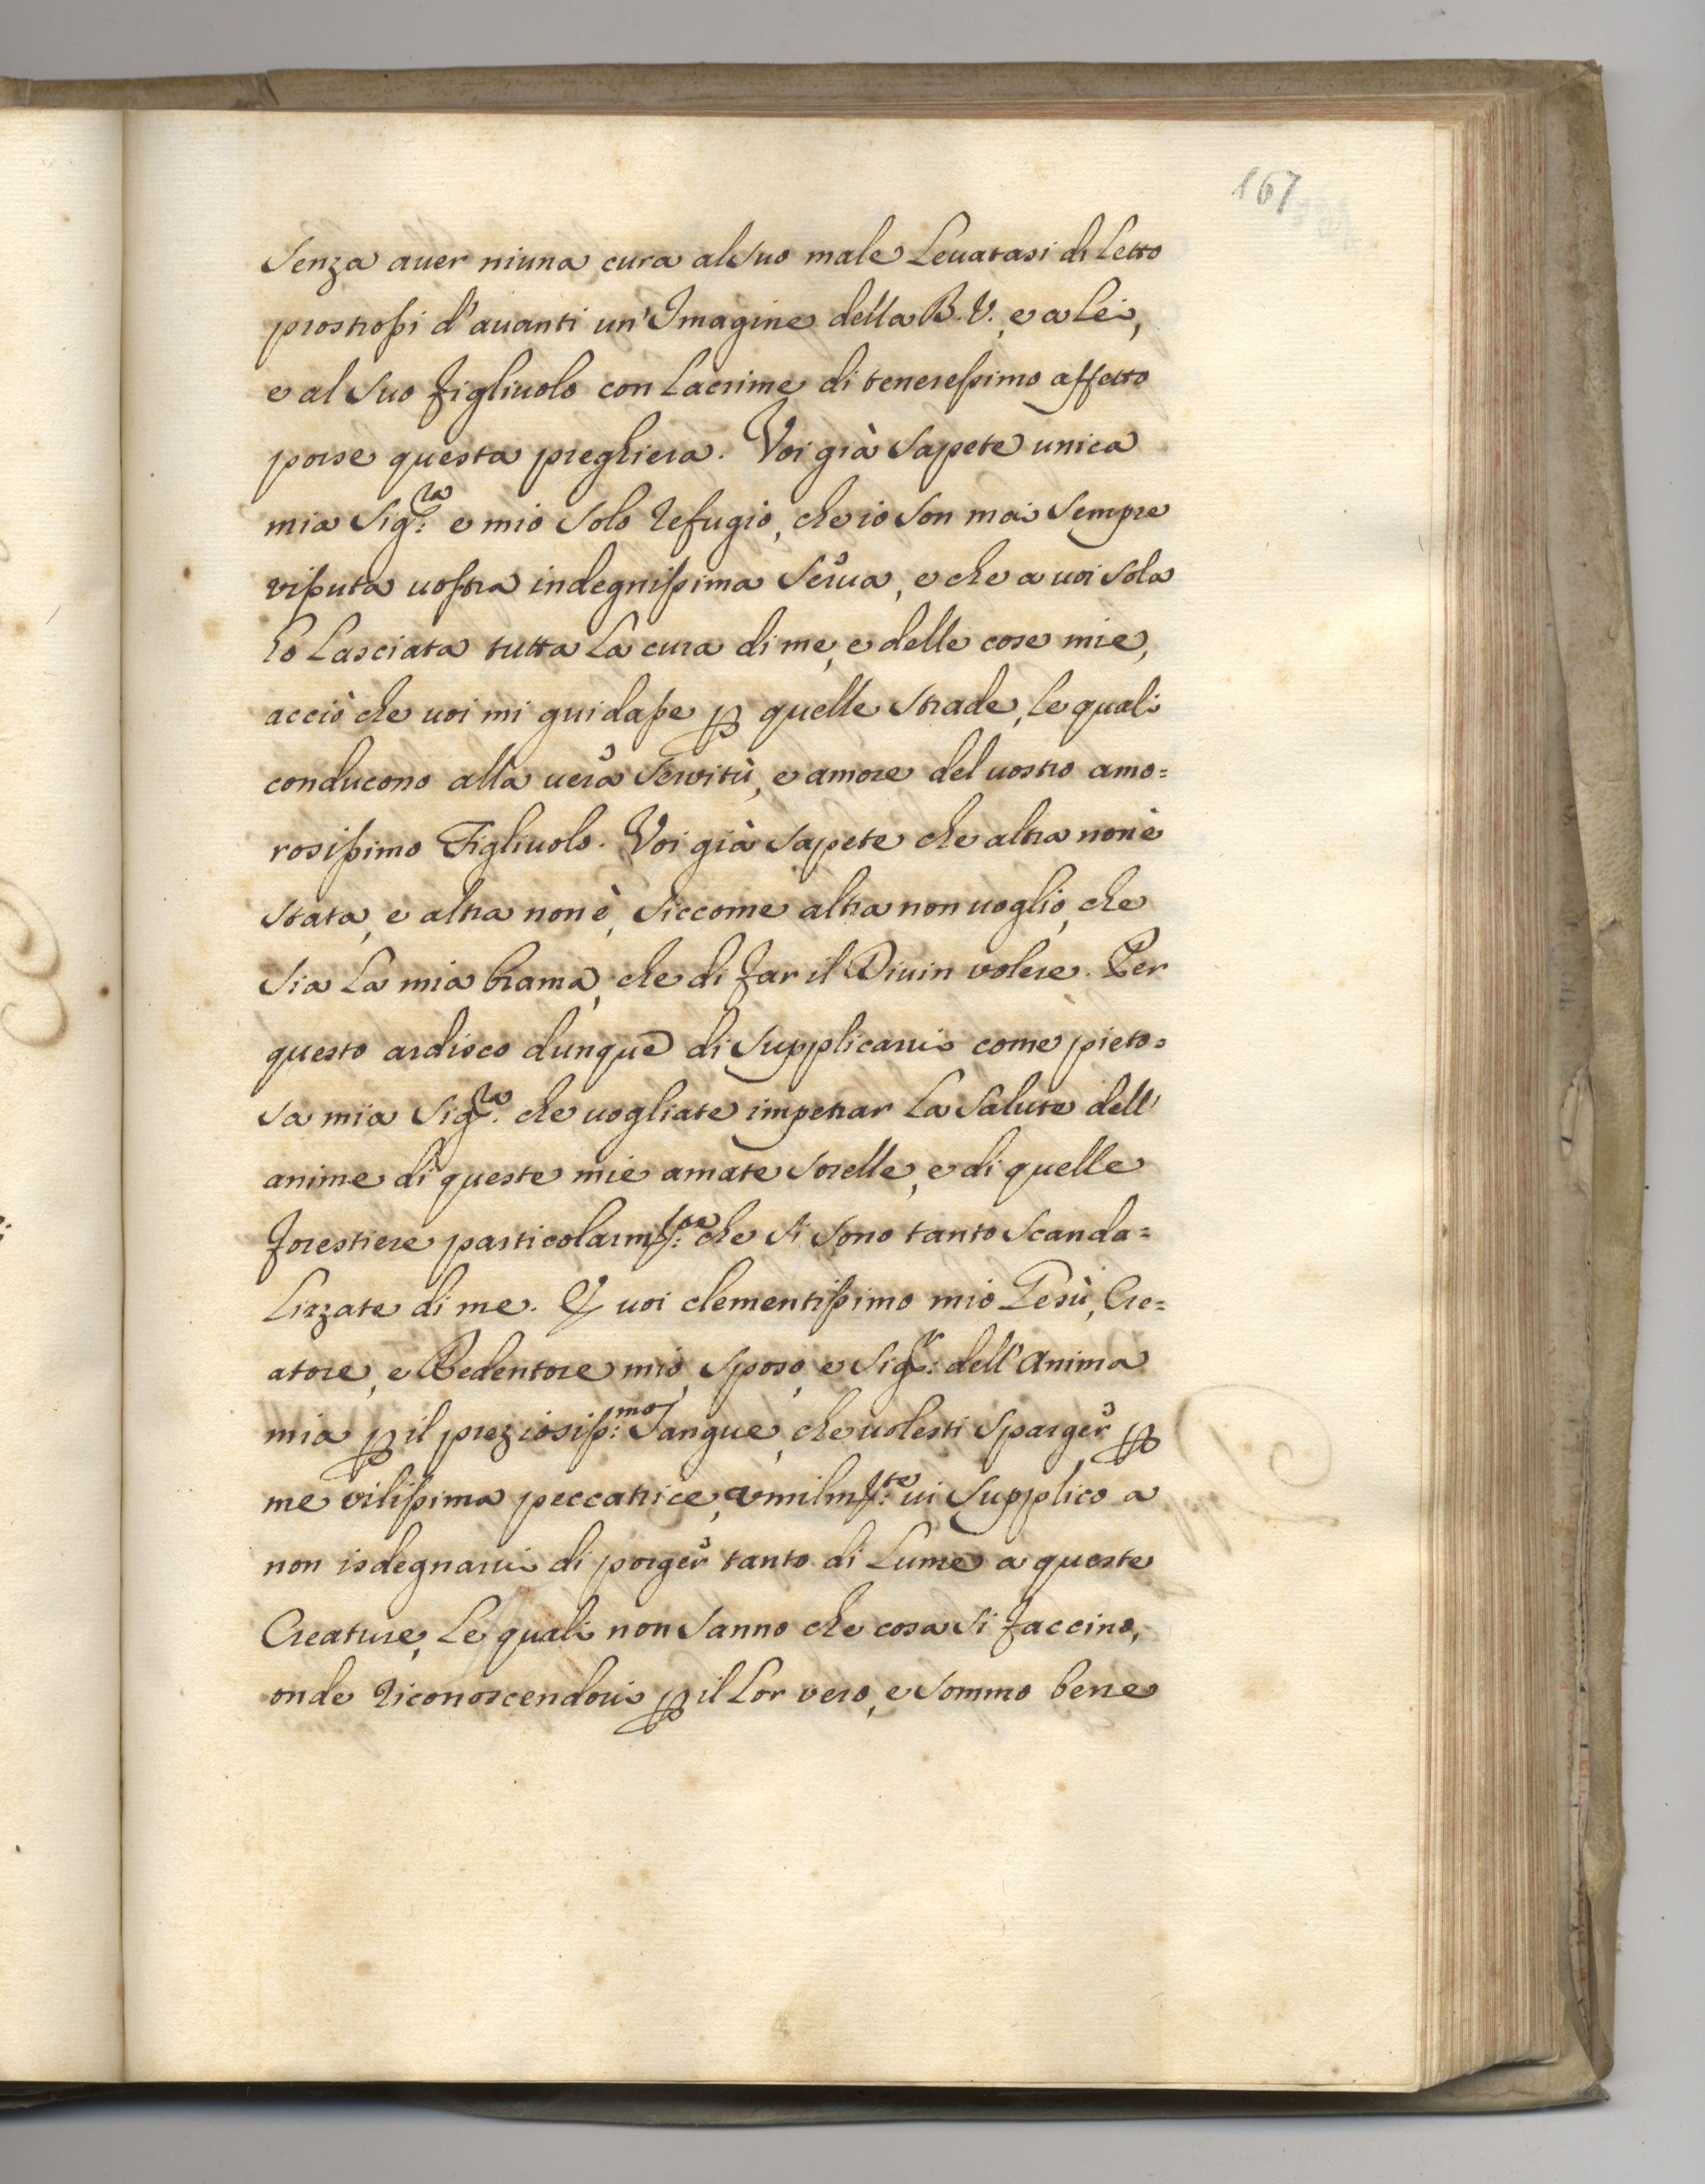 167
Senza auer niuna cura al suo male Leuatasi di Letto
prostrossi d'auanti un'Imagine della B. V. e a Lei,
e al suo figliuolo con Lacrime di teneressimo affetto
porse questa preghiera. Voi già sapete unica
mia Sig.ra e mio solo refugio, che io son mai sempre
vissuta uostra indegnissima Serua, e che a uoi sola
ho Lasciata tutta La cura di me, e delle cose mie,
acciò che uoi mi guidasse ꝑ quelle strade, Le quali
conducono alla uera Servitù, e amore del uostro amo=
rosissimo Figliuolo. Voi già sapete che altra non è
stata, e altra non è, siccome altra non uoglio, che
sia La mia brama, che di far il Diuin volere. Per
questo ardisco dunque di supplicarui come pieto=
sa mia Sig.ra che uogliate impetrar La salute dell'
anime di queste mie amate sorelle, e di quelle
forestiere particolarm.te che si sono tanto scanda=
Lizzate di me. E uoi clementissimo mio Gesù, Cre=
atore, e Redentore mio, sposo, e Sig.r dell'Anima
mia ꝑ il preziosiss.mo Sangue, che uolesti sparger ꝑ
me vilissima peccatrice, vmilm.te ui supplico a
non isdegnarui di porger tanto di Lume a queste
Creature, Le quali non sanno che cosa si faccino,
onde riconoscendoui ꝑ il Lor vero, e sommo bene